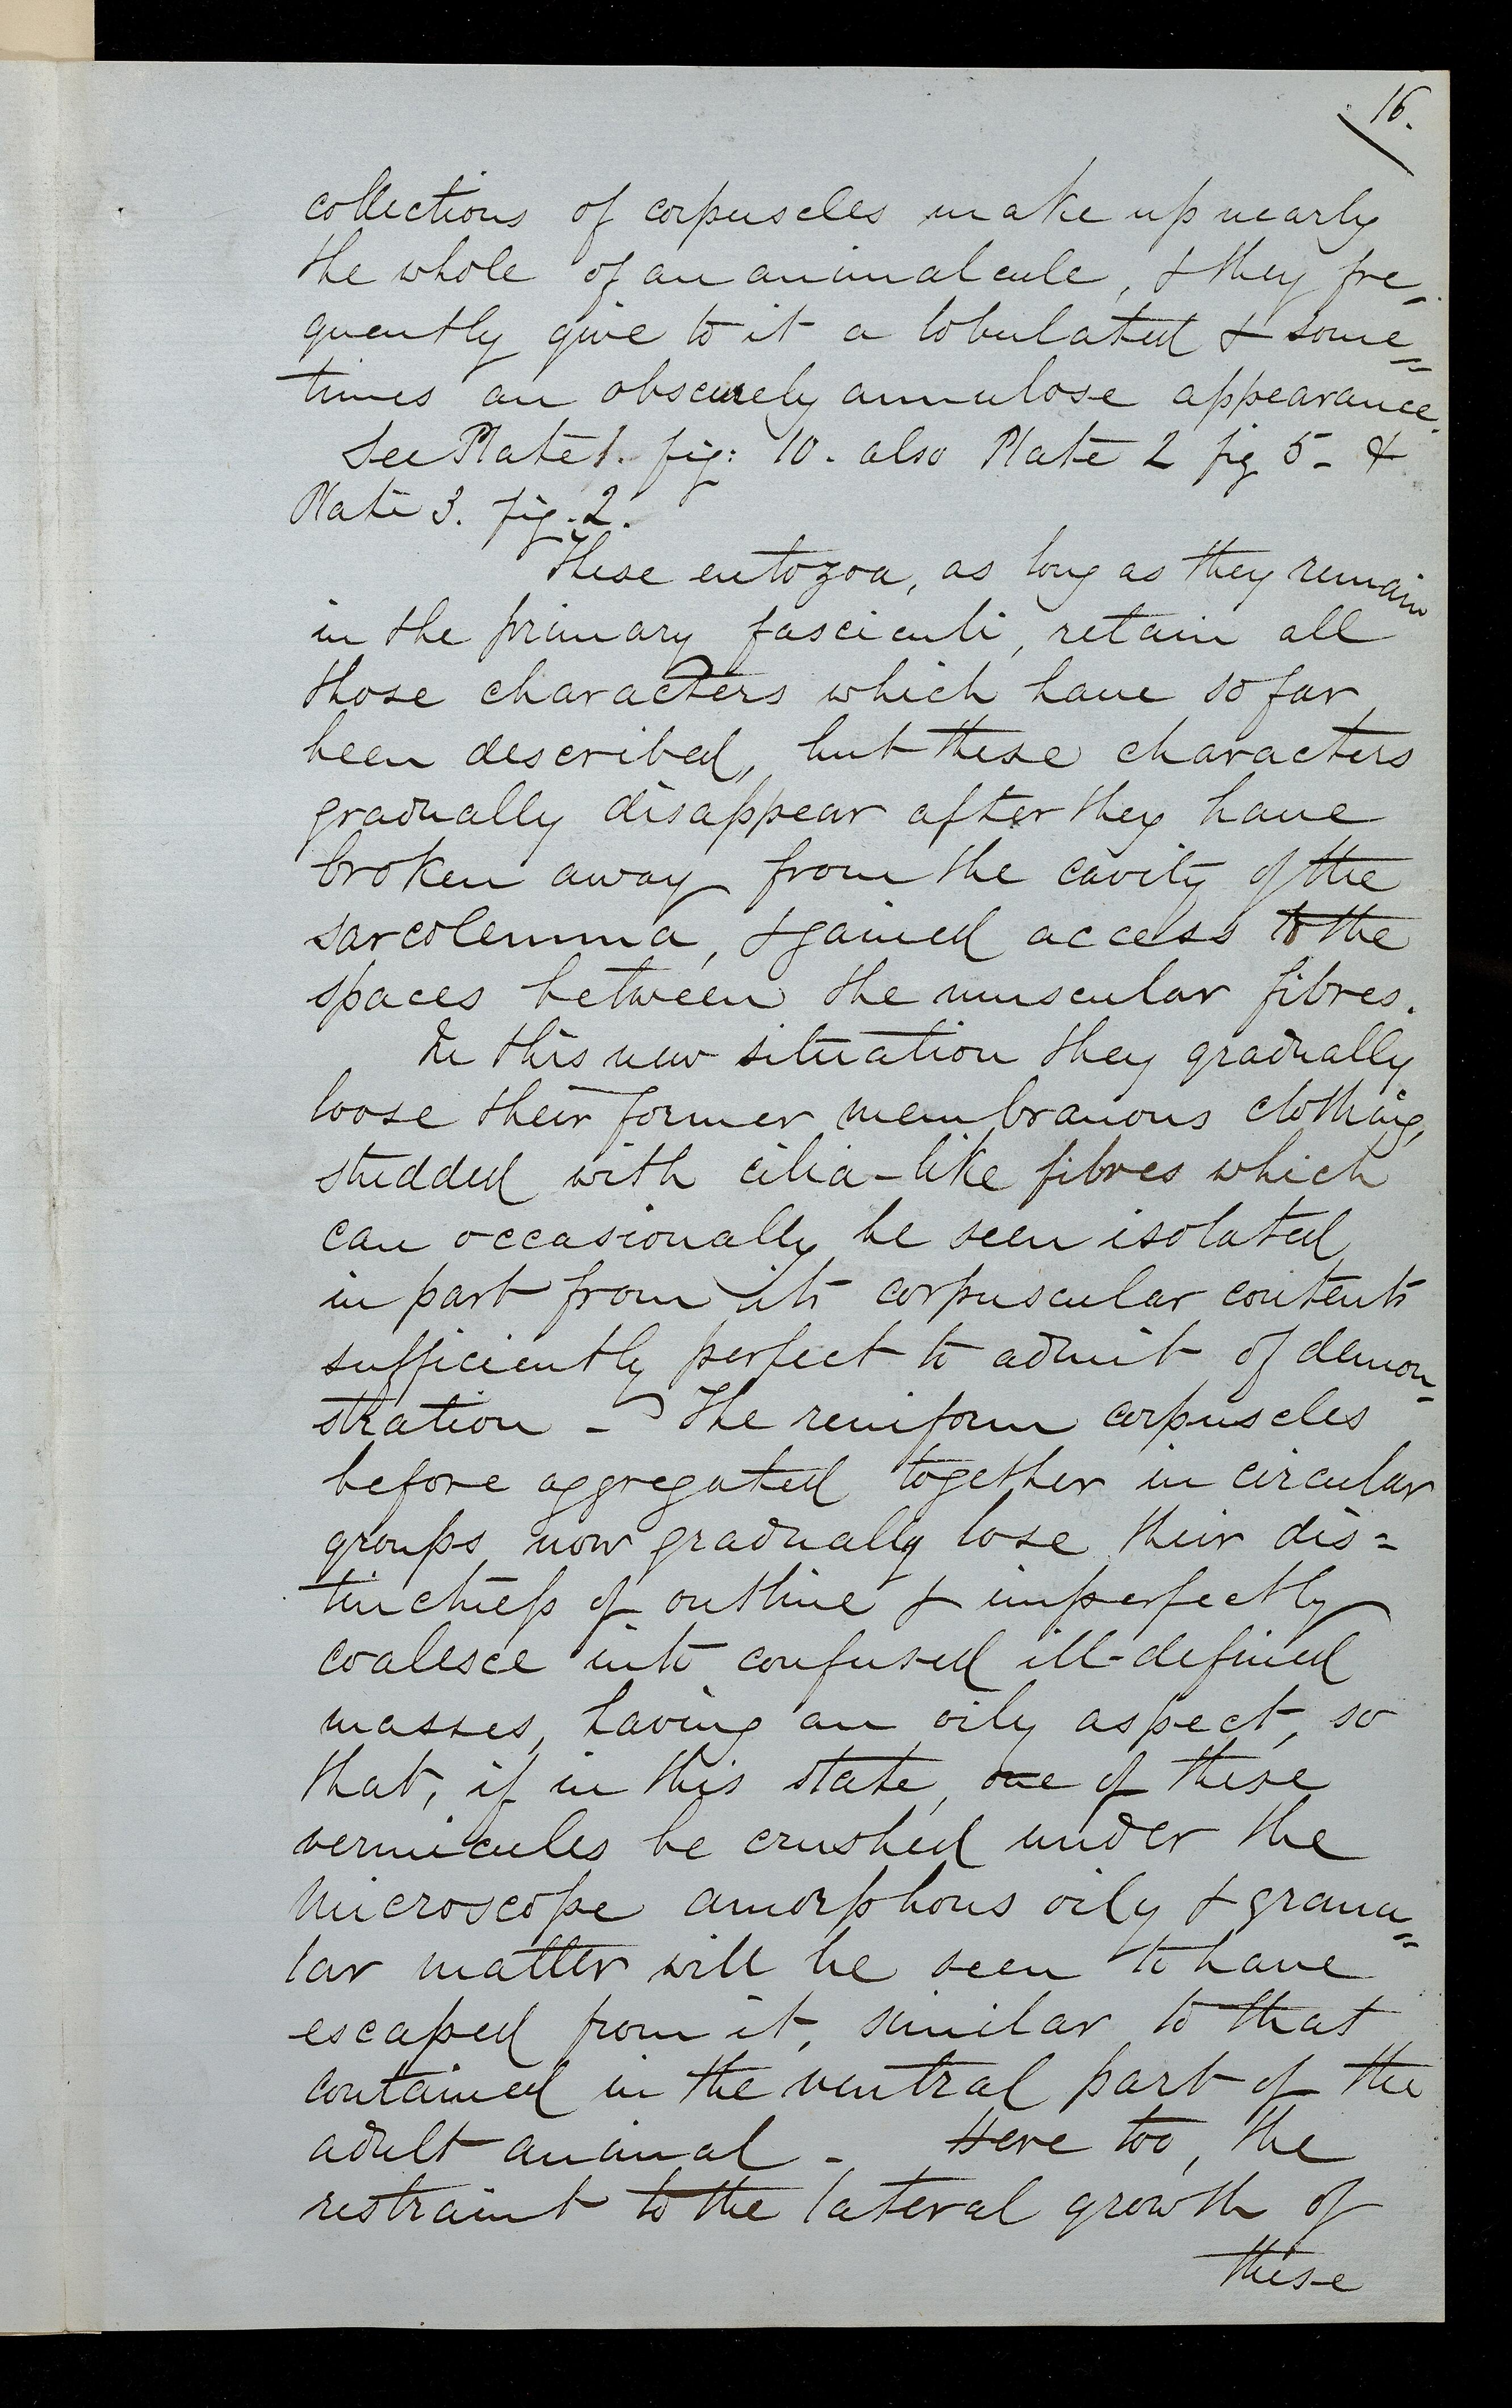 16.
collections of corpuscles make up nearly
the whole of an animalcule, & they fre-
quently give to it a lobulated & some=
times an obscurely annulose appearance.
See Plate 1. fig: 10. also Plate 2 fig 5 - &
Plate 3. fig. 2.
These entozoa, as long as they remain
in the primary fasciculi, retain all
those characters which have so far
been described, but these characters
gradually disappear after they have
broken away from the cavity of the
sarcolemma, & gained access to the
spaces between the muscular fibres.
In this new situation they gradually
loose their former membranous clothing,
studded with cilia-like fibres which
can occasionally be seen isolated
in part from its corpuscular contents
sufficiently perfect to admit of demon-
stration - The reniform corpuscles
before aggregated together in circular
groups now gradually lose their dis=
tinctness of outline & imperfectly
coalesce into confused ill-defined
masses, having an oily aspect, so
that, if in this state, one of these
vermicules be crushed under the
microscope amorphous oily & granu=
lar matter will be seen to have
escaped from it, similar to that
contained in the ventral part of the
adult animal - Here too, the
restraint to the lateral growth of
these